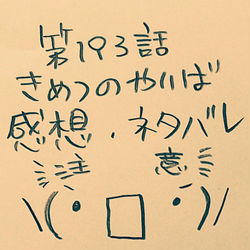 第193話
きめつのやいば
感想・ネタバレ
注意
\(• □ •)/